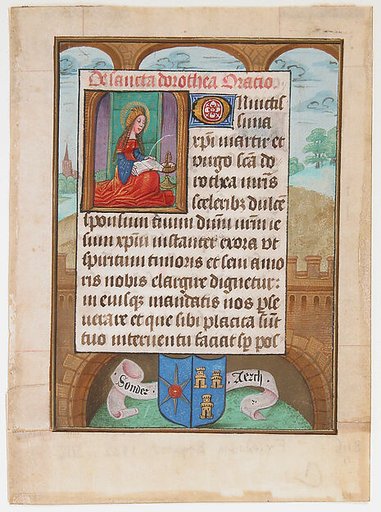 De sancta dorothea Oracio.
O Inuictis
sima
xpi martir et
virgo scā do
rothea nr̄is
sceleribꝰ dulcē
sponsum tuum dn̄m nr̄m ie
sum xpm̄ instanter exora vt
spiritum timoris et sc̄i amo
ris nobis elargire dignetur:
in eiusqꝫ mandatis nos pse
uerare et que sibi placita sūt
tuo interuentu faciat sp̄ pos
Sonder · Aerch ·